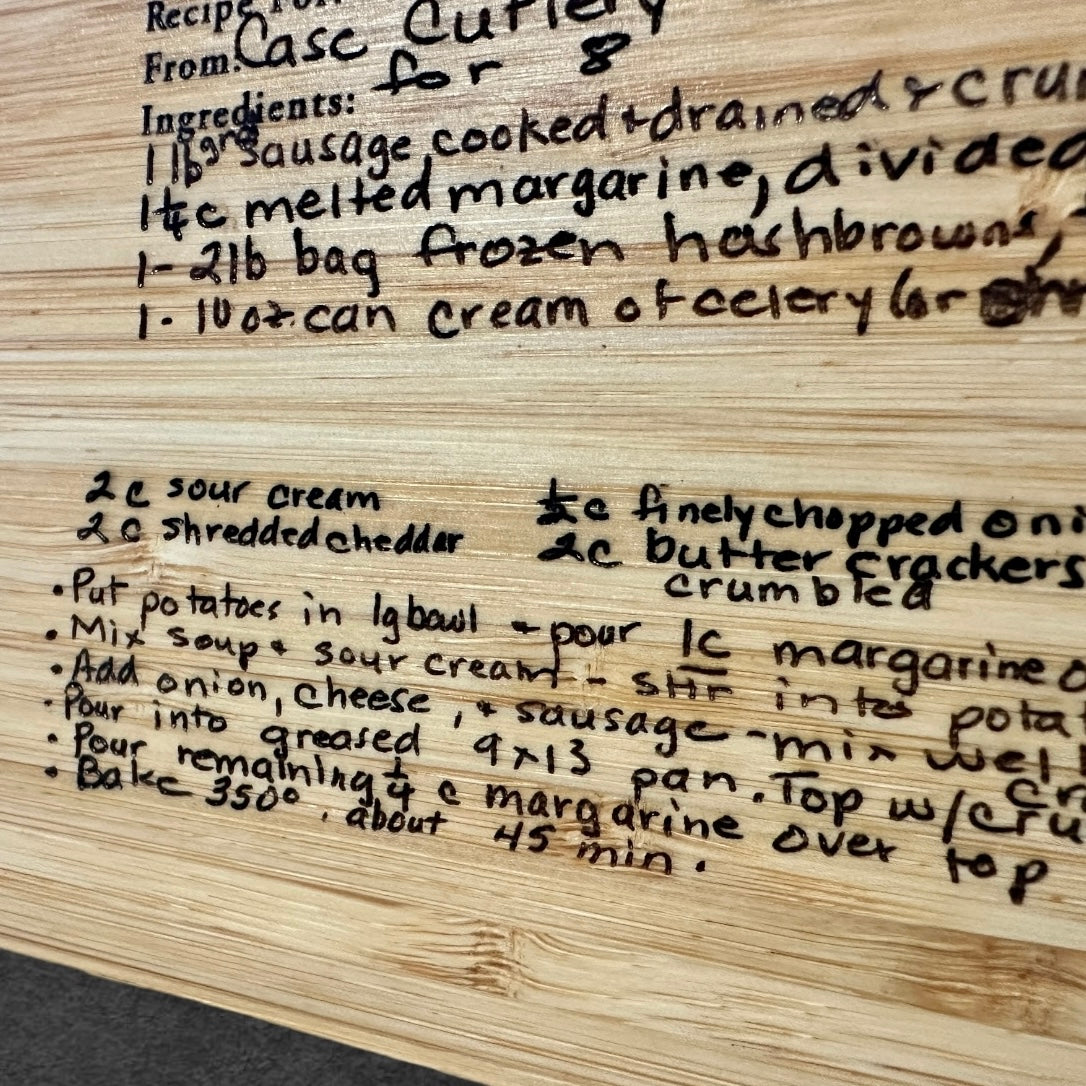 Recipe For:
From: Case Cutlery
for 8
Ingredients:
1 lb grd sausage, cooked + drained + cru
1 1/4 c melted margarine, divided
1- 2lb bag frozen hashbrowns,
1- 10 oz. can cream of celery (or
2 c sour cream
2 c shredded cheddar
1/2 c finely chopped oni
2c butter crackers
crumbled
• Put potatoes in lg bowl - pour 1c margarine o
• Mix soup + sour cream - stir into pota
• Add onion, cheese, + sausage - mix well
• Pour into greased 9x13 pan. Top w/cru
• Pour remaining 1/4 c margarine over top
• Bake 350°. about 45 min.